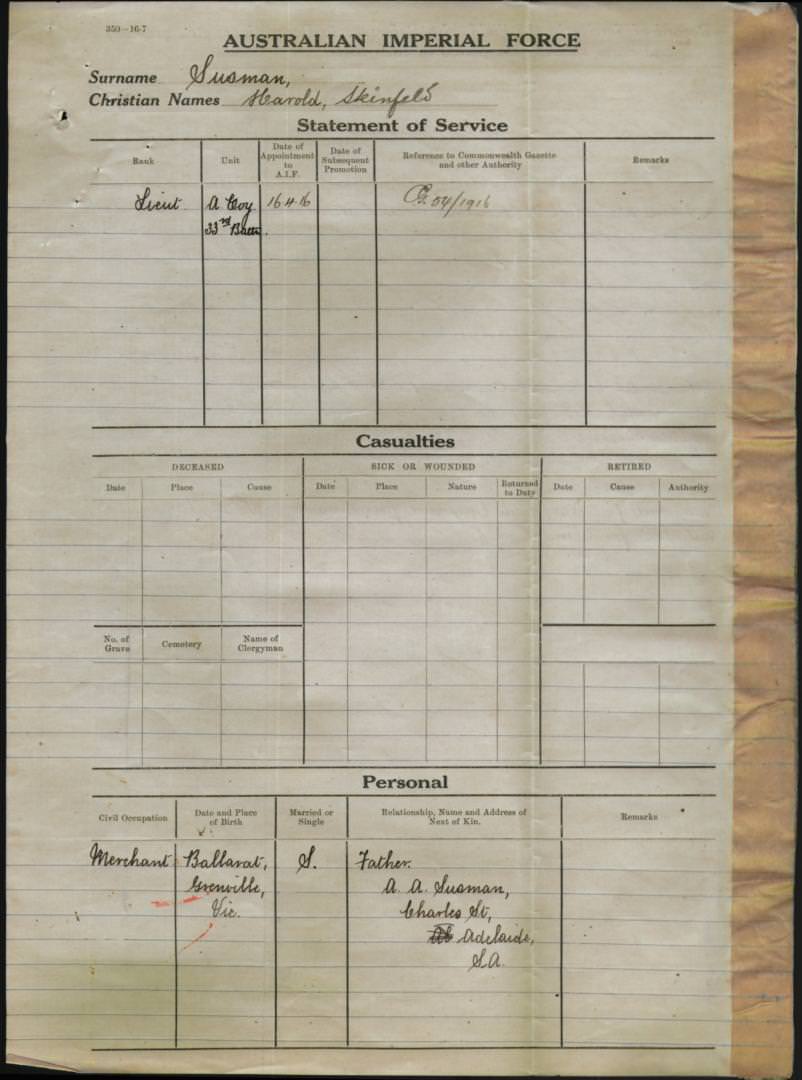 350—16-7
AUSTRALIAN IMPERIAL FORCE
Surname Susman,
Christian Names Harold, Skinfeld
Statement of Service
Rank
Unit
Date of
Appointment
to
A.I.F.
Date of
Subsequent
Promotion
Reference to Commonwealth Gazette
and other Authority
Remarks
Lieut
A Coy
33rd Battn.
16.4.16
54/1916
Casualties
DECEASED
SICK OR WOUNDED
RETIRED
Date
Place
Cause
Date
Place
Nature
Returned
to Duty
Date
Cause
Authority
No. of
Grave
Cemetery
Name of
Clergyman
Personal
Civil Occupation
Date and Place
of Birth
Married or
Single
Relationship, Name and Address of
Next of Kin.
Remarks
Merchant
Ballarat,
Grenville,
Vic.
S.
Father.
A. A. Susman,
Charles St,
Adelaide,
S.A.